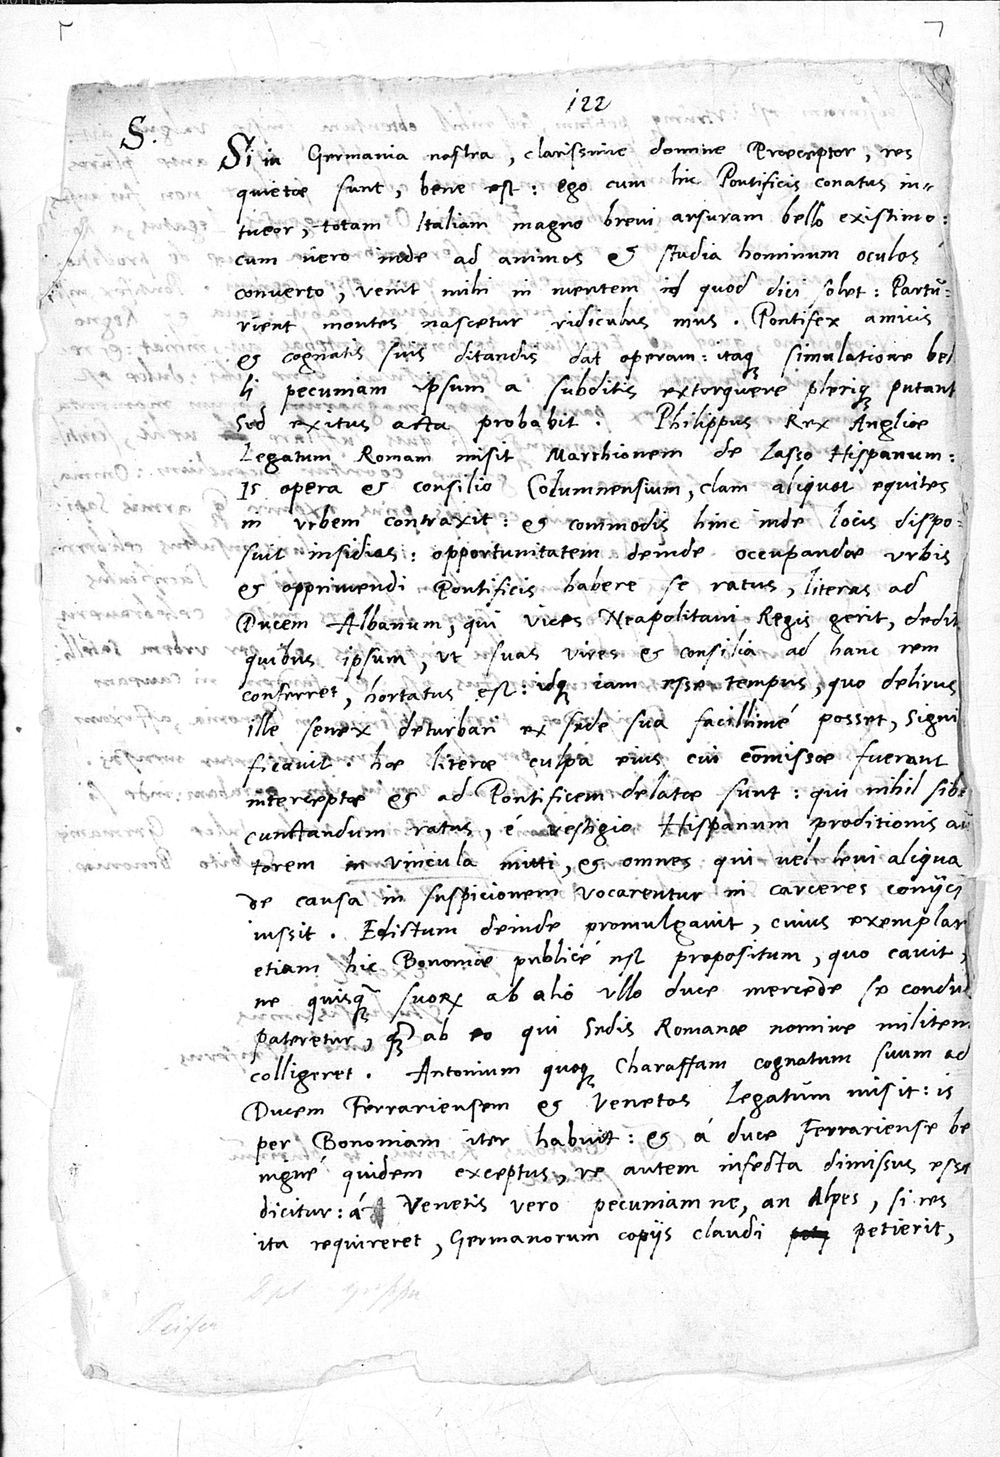 122
S.
Si in Germania nostra, clarissime domine Præceptor, res
quietæ sunt, bene est: ego cum hic Pontificis conatus in=
tueor, totam Italiam magno brevi arsuram bello existimo:
cum vero inde ad animos & studia hominum oculos
converto, venit mihi in mentem id quod dici solet: Partū=
rient montes nascetur ridiculus mus. Pontifex amicis
& cognatis suis ditandis dat operam: itaqꝫ simulatione bel
li pecuniam ipsum a subditis extorquere pleriqꝫ putant
Sed exitus acta probabit. Philippus Rex Angliæ
Legatum Romam misit Marchionem de Lasso Hispanum:
Is opera & consilio Columnensium, clam aliquot equites
in urbem contraxit: & commodis hinc inde locis dispo=
suit insidias: opportunitatem deinde occupandæ urbis
& opprimendi Pontificis habere se ratus, literas ad
Ducem Albanum, qui vices Neapolitani Regis gerit, dedit
quibus ipsum, ut suas vires & consilia ad hanc rem
conferret, hortatus est: idqꝫ iam esse tempus, quo delirus
ille senex deturbari ex sede sua facillimé posset, signi
ficavit. hæ literæ culpa eius cui com̄issæ fuerant
interceptæ & ad Pontificem delatæ sunt: qui nihil sibi
cunctandum ratus, é vestigio Hispanum proditionis au
torem in vincula mitti, & omnes qui vel levi aliqua
de causa in suspicionem vocarentur in carceres coniici
iussit. Edictum deinde promulgavit, cuius exemplar
etiam hic Bononiæ publicé est propositum, quo cavit,
ne quisqꝫ suorꝝ ab alio ullo duce mercede se conduci
pateretur, qꝫ ab eo qui Sedis Romanæ nomine militem
colligeret. Antonium quoqꝫ Charaffam cognatum suum ad
Ducem Ferrariensem & Venetos Legatum misit: is
per Bononiam iter habuit: & á duce Ferrariense be
nigné quidem exceptus, re autem infecta dimissus esse
dicitur: á Venetis vero pecuniam ne, an Alpes, si res
ita requireret, Germanorum copijs claudi petierit,